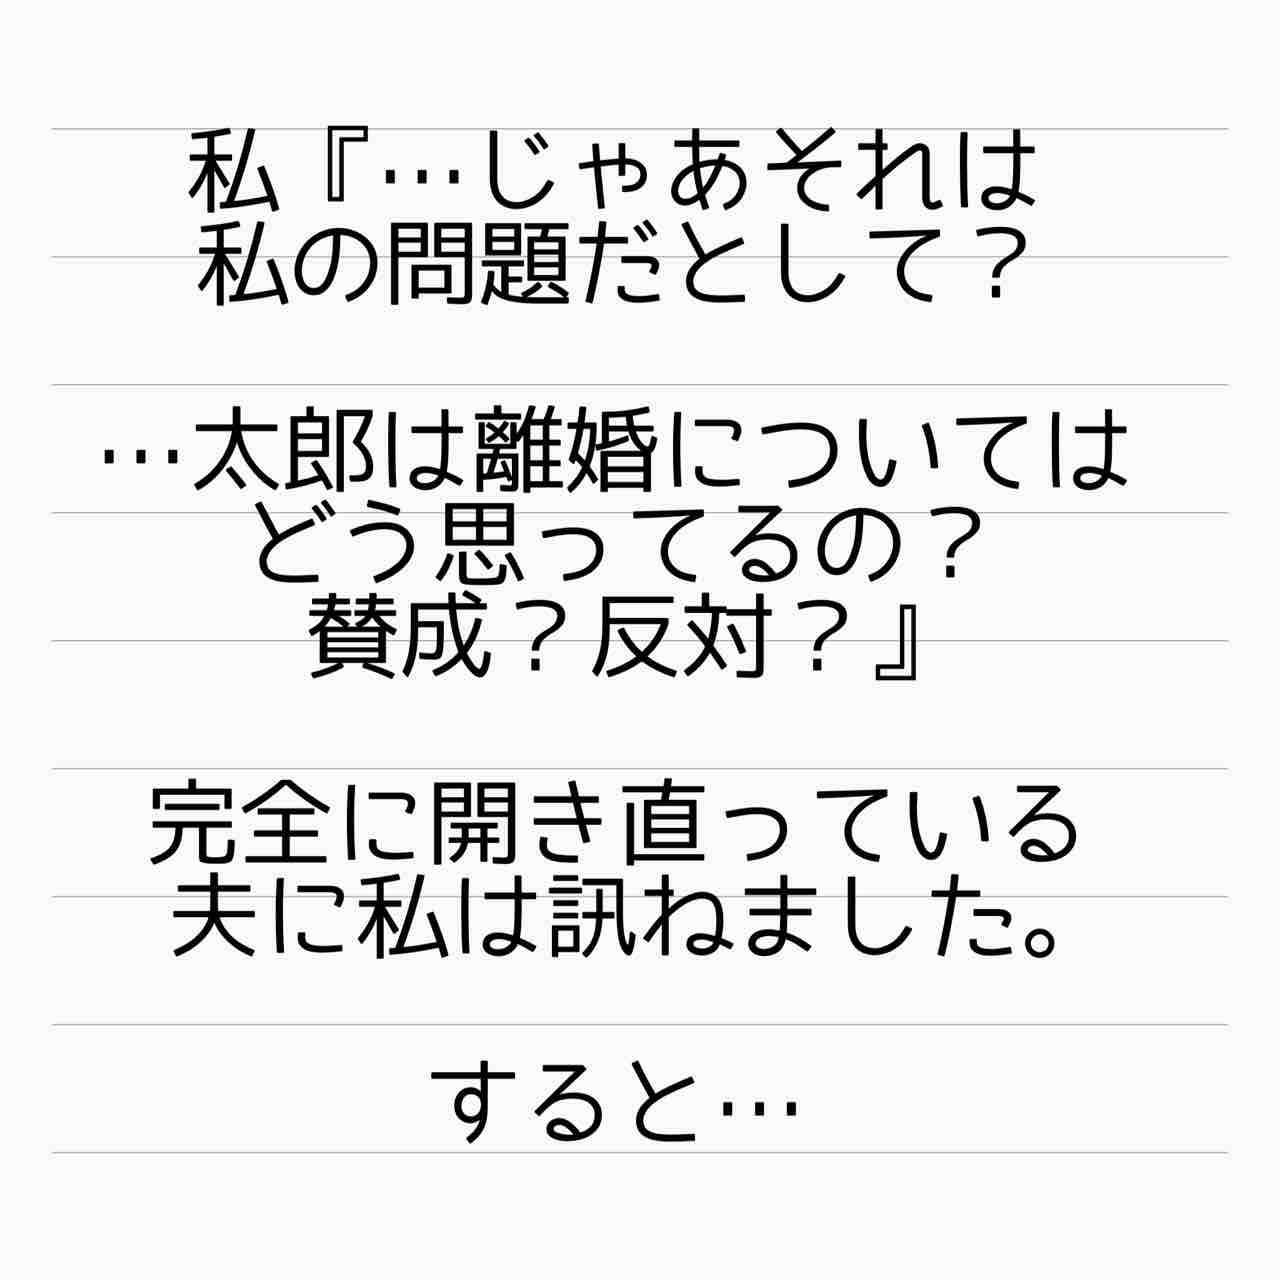 私『…じゃあそれは
私の問題だとして？
…太郎は離婚については
どう思ってるの？
賛成？反対？』
完全に開き直っている
夫に私は訊ねました。
すると…